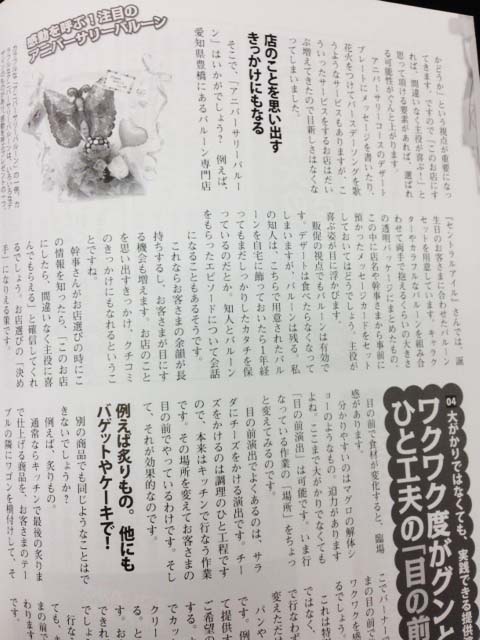 感動を呼ぶ!注目の
アニバーサリーバルーン
かどうか」という視点が重要になっ
てきます。ですので「このお店にす
れば、間違いなく主役が喜ぶ!」と
思って頂ける要素があれば、選ばれ
る可能性がぐんと上がります。
アニバーサリーコースのデザート
プレートにメッセージを書いたり、
花火をつけてバースデーソングを歌
うようなサービスもありますが、こ
ういったサービスをするお店はだい
ぶ増えてきたので目新しさはなくな
ってしまいました。
店のことを思い出す
きっかけにもなる
そこで、「アニバーサリーバルー
ン」はいかがでしょう? 例えば、
愛知県豊橋にあるバルーン専門店
『セントラルアイル』さんでは、誕
生日のお客さまに合わせたバルーン
セットを用意しています。キャラク
ターやカラフルなバルーンを組み合
わせて両手で抱えるくらいの大きさ
の透明パッケージにまとめたもの。
この中に店名や幹事さまから事前に
預かったメッセージカードをセット
しておいてはどうでしょう。主役が
喜ぶ姿が目に浮かびます。
販促の視点でもバルーンは有効で
す。デザートは食べたらなくなって
しまいますが、バルーンは残る。私
の知人は、こちらで用意されたバル
ーンを自宅に飾っておいたら1年経
ってもまだしっかりしたカタチを保
っているのだとか。知人とバルーン
をもらったエピソードについて会話
になることもあるそうです。
これならお客さまの余韻が長
持ちするし、お客さまが目にす
る機会も増えます。お店のこと
を思い出すきっかけ、クチコミ
のきっかけにもなれるというこ
とですね
幹事さんがお店選びの時にこ
の情報を知ったら、「このお店
にしたら、間違いなく主役に喜
んでもらえる」と確信してくれ
るでしょう。お店選びの「決め
手」になりえる業です。
04 大がかりではなくても、実践できる提供
ワクワク度がグンと
ひと工夫の「目の前
目の前で食材が変化すると、臨場
感があります。
分かりやすいのはマグロの解体シ
ョーのようなもの。迫力があります
よね。ここまで大がかりでなくても
「目の前演出」は可能です。いま行
なっている作業の「場所」をちょっ
と変えてみるのです。
目の前演出でよくあるのは、サラ
ダにチーズをかける演出です。チー
ズをかけるのは調理のひと工程です
ので、本来はキッチンで行なう作業
です。その場所を変えてお客さまの
目の前でやっているわけです。そし
て、それが効果的なのです。
例えば炙りもの。他にも
バゲットやケーキで!
別の商品でも同じようなことはで
きないでしょうか?
例えば、炙りもの。
通常ならキッチンで最後の炙りま
で仕上げる商品を、お客さまのテー
ブルの隣にワゴンを横付けして、そ